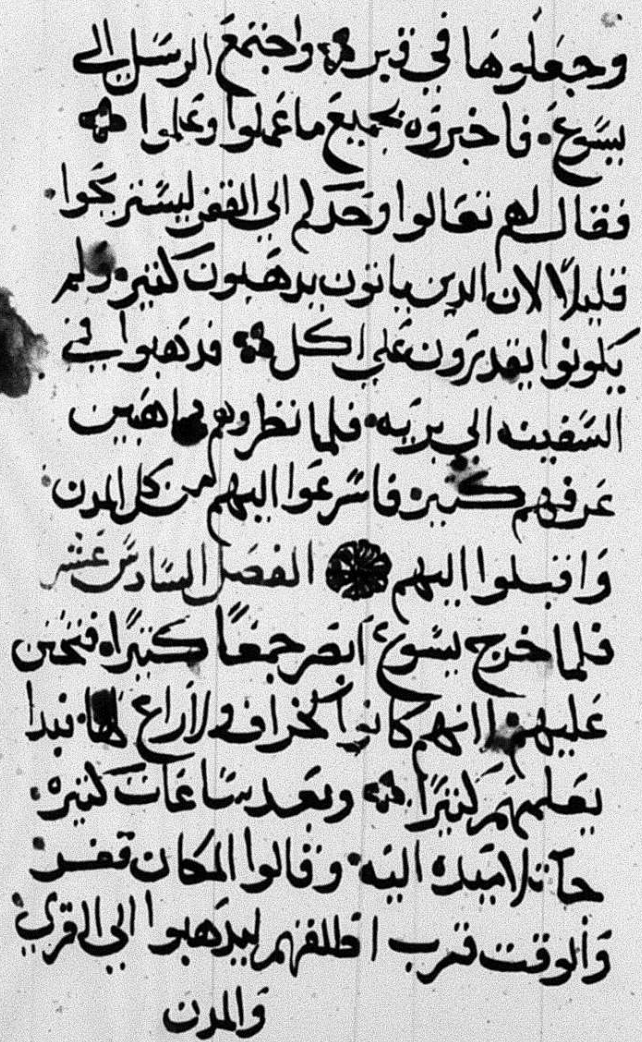 وجعلوها في قبر ❖ واجتمع الرسل الي
يسوع. فاخبروه بجميع ما عملوا وعلموا ❖
فقال لهم تعالوا وحدكم الي القفر ليستريحوا.
قليلاً لان الدين ياتون يدهبون كتير. ولم
يكونوا يقدرون علي اكل ❖ فدهبوا في
السفينه الي بريه. فلما نظروهم داهبين
عرفهم كتير. فاسرعوا اليهم من كل المدن.
واقبلوا اليهم ❁ الفصل السادس عشر
فلما خرج يسوع ابصر جمعاً كتيراً. فتحنن
عليهم. انهم كانوا كخراف ولا راع لها. فبدا
يعلمهم كتيراً ❖ وبعد ساعات كتيره.
جآ تلاميده اليه. وقالوا المكان قفر
والوقت قرب اطلقهم ليدهبوا الي القري
والمدن